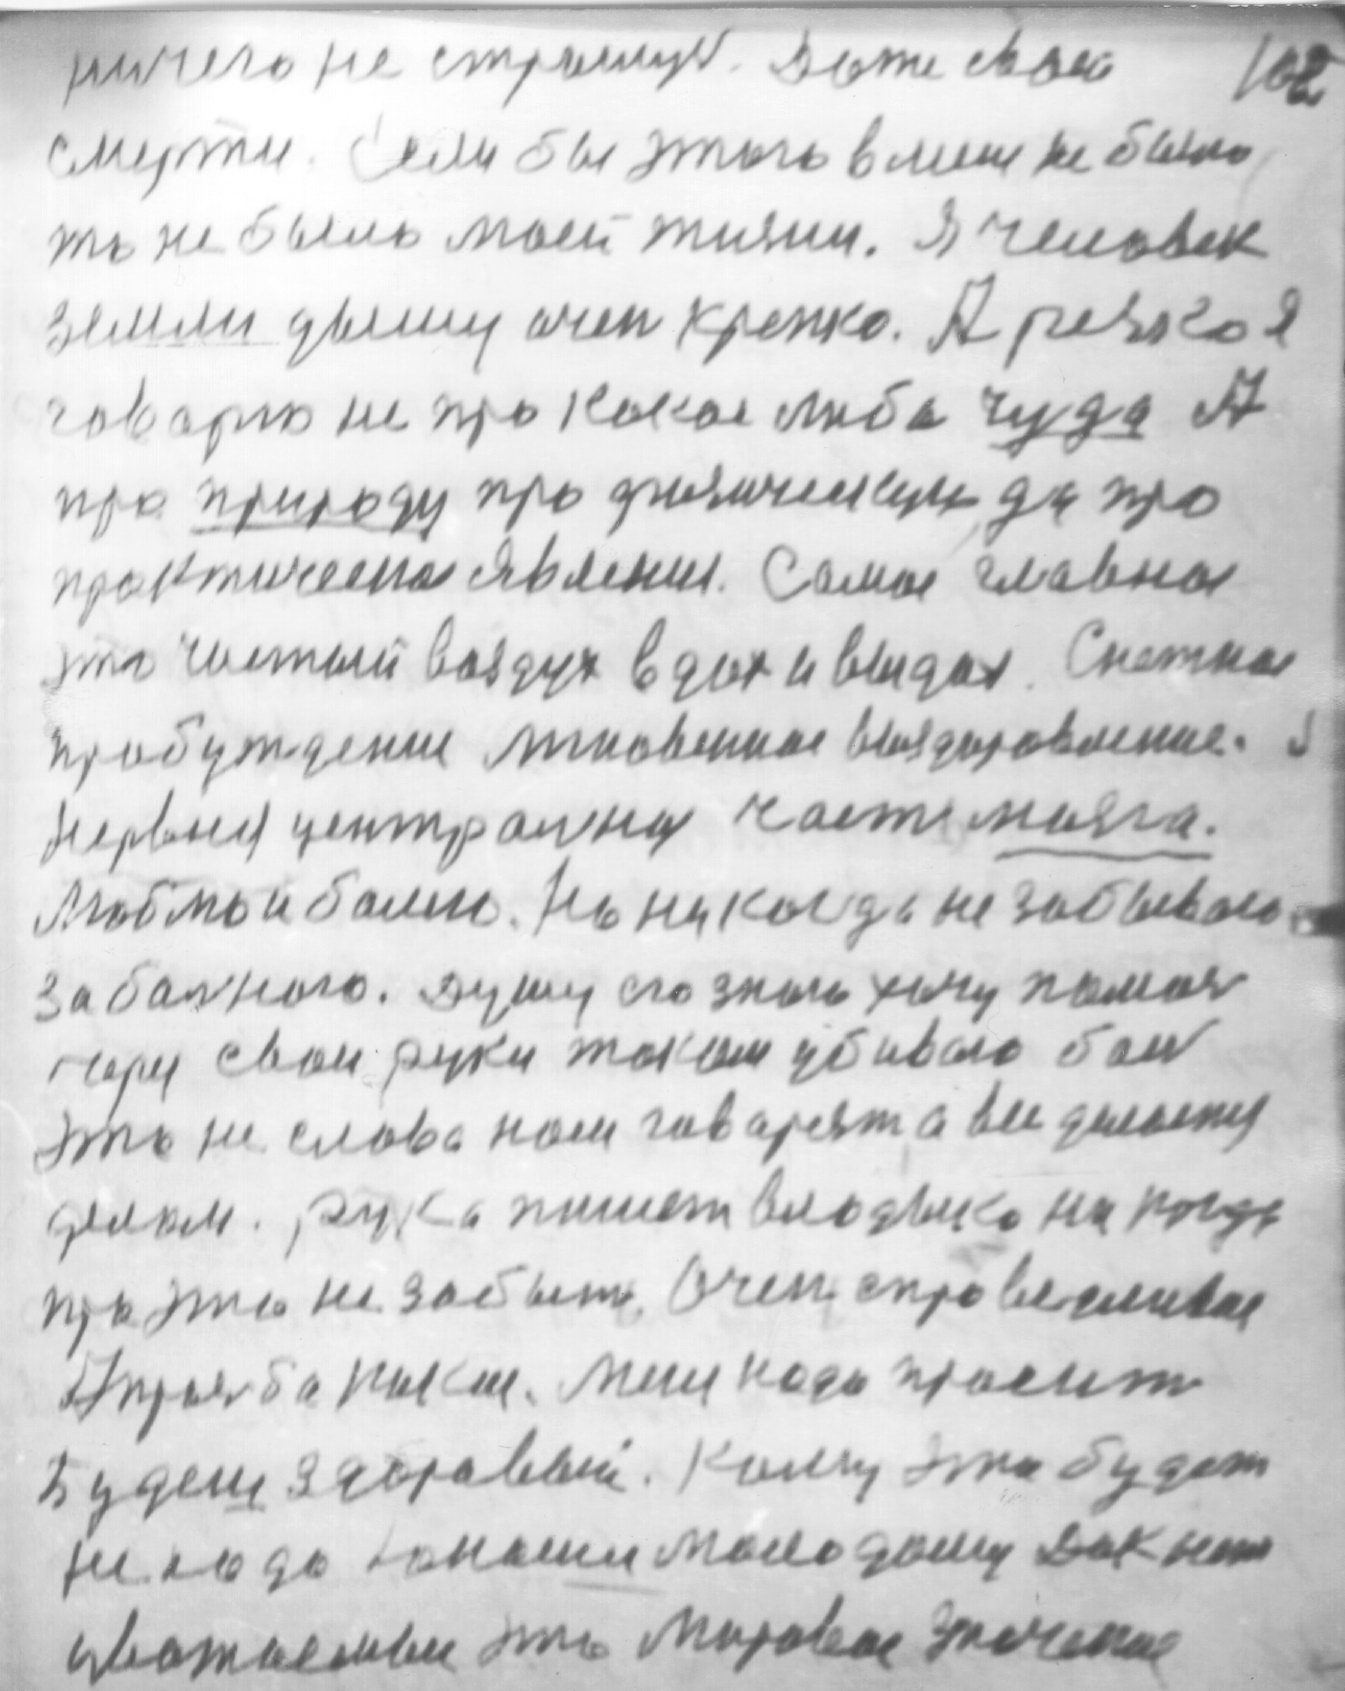 ничего не страшус. Даже своей 102
смерти. Если бы этого в мене не было
то не было моей жизни. Я человек
земли дышу очен крепко. А резко я
говарю не про какое либа чуда А
про природу про физическую да про
практическое явления. Самое главное
это чистый воздух вдох и выдох. Снежное
пробуждение мгновенное выздоровление.
Нервная централная часть мозга.
Люблю и болею. Но никогда не забываю
за болного. Душу его знаю хочу помоч
через свои руки током убиваю бол
Это не слова нам говарят а все делается
делом. Рука пишет владыка никогда
про это не забыть. Очен справедливое
А прозба какая. Мене надо просить
Будеш здоровый. Кому это будет
не надо юноши молодому Дак нет
уважаемые это Мировое значение